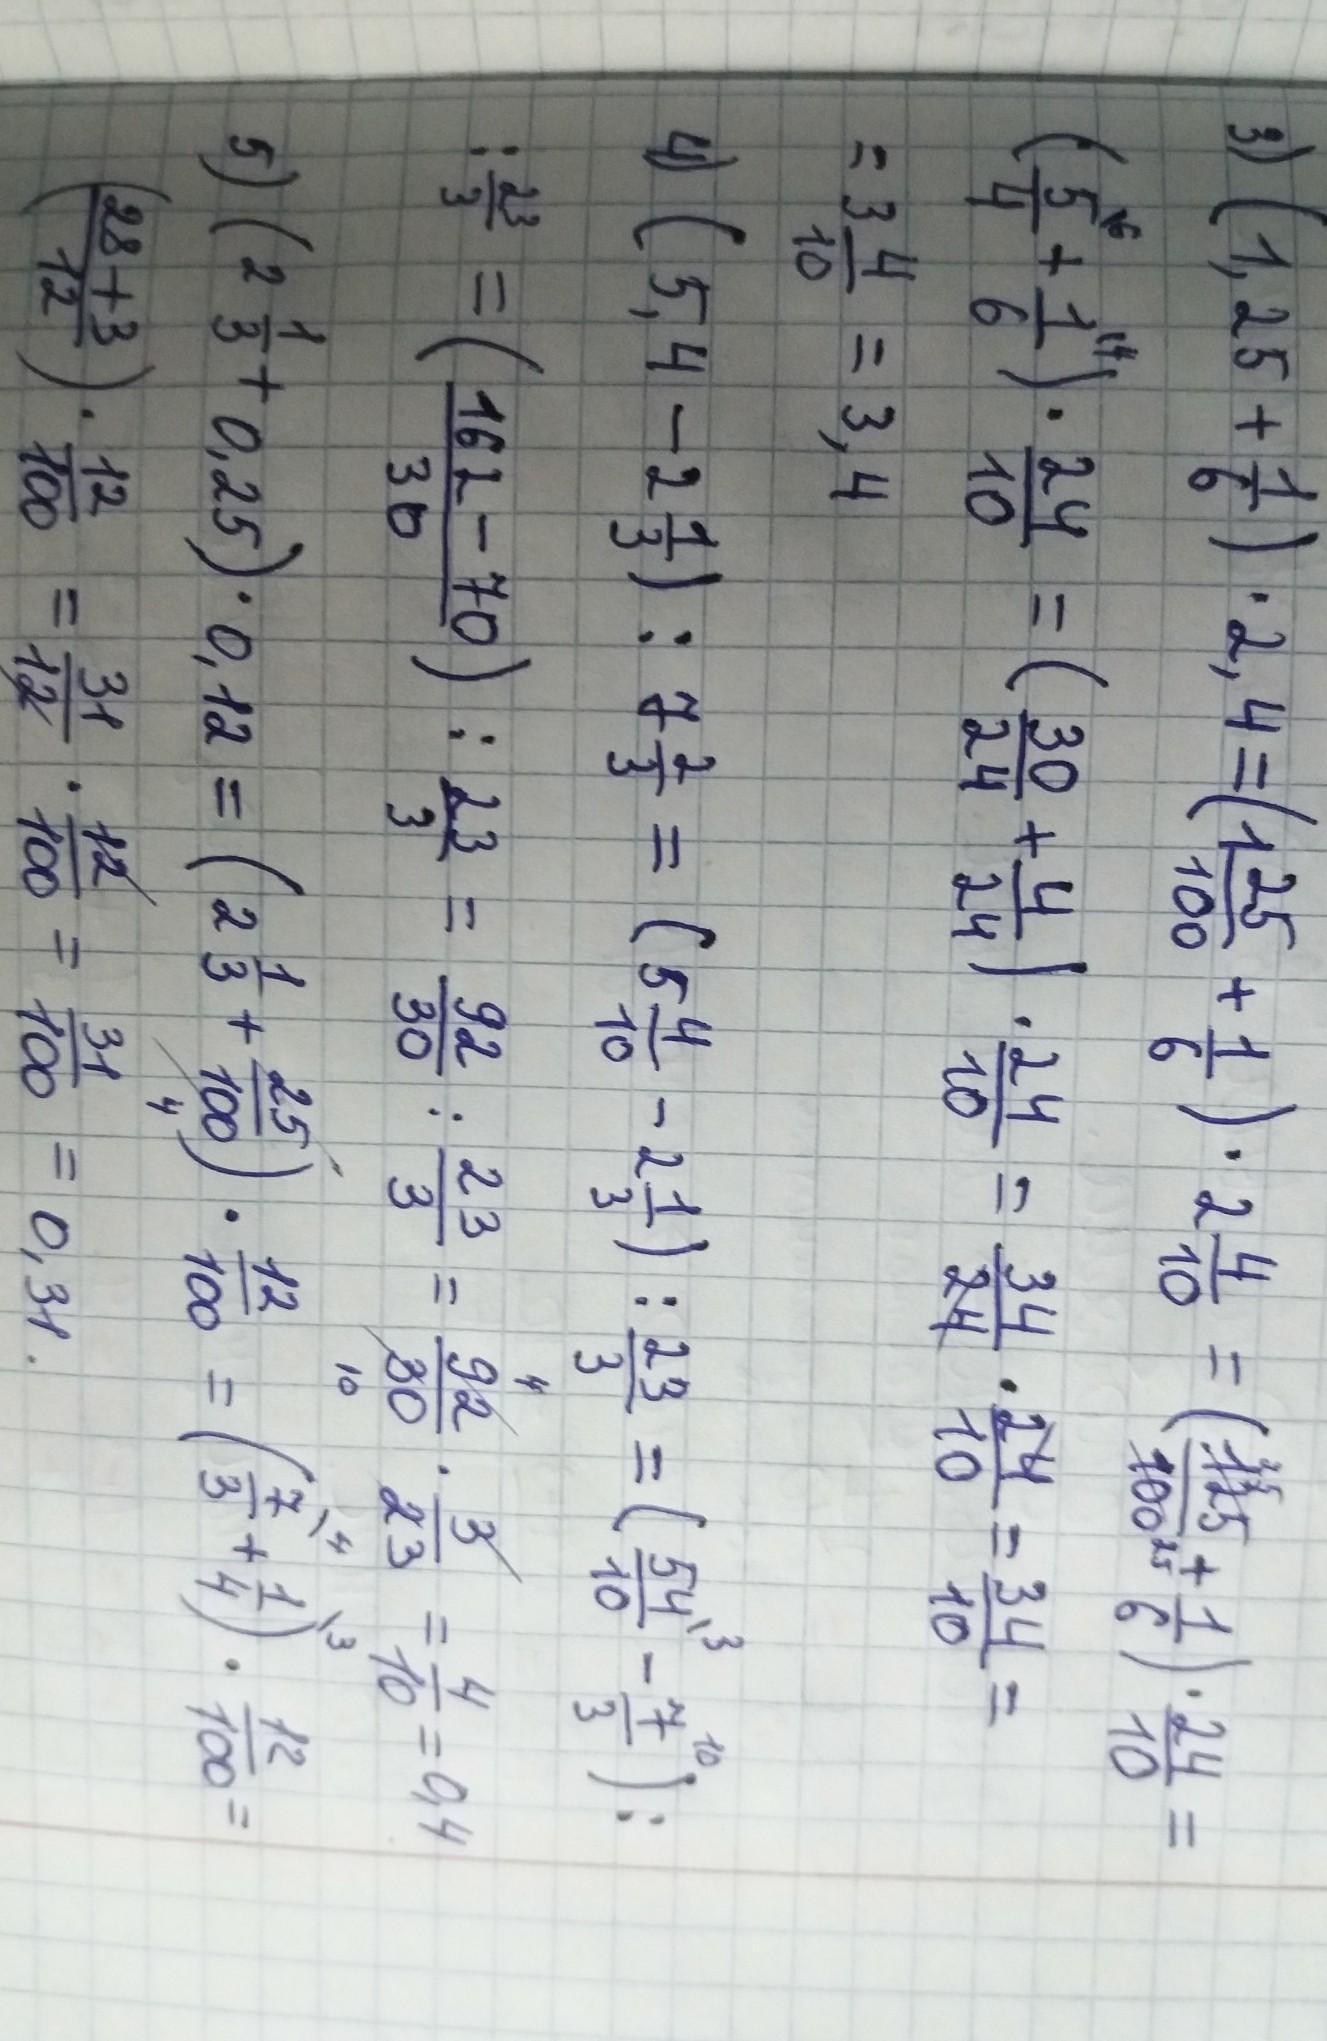 3) (1,25 + 1/6) · 2,4 = (1 25/100 + 1/6) · 2 4/10 = (125/100 + 1/6) · 24/10 =
(5/4 + 1/6) · 24/10 = (30/24 + 4/24) · 24/10 = 34/24 · 24/10 = 34/10 =
= 3 4/10 = 3,4
4) (5,4 - 2 1/3) : 7 2/3 = (5 4/10 - 2 1/3) : 23/3 = (54/10 \3 - 7/3 \10) :
: 23/3 = (162 - 70 / 30) : 23/3 = 92/30 : 23/3 = 92/30 · 3/23 = 4/10 = 0,4
4 10
5) (2 1/3 + 0,25) · 0,12 = (2 1/3 + 25/100) · 12/100 = (7/3 \4 + 1/4 \3) · 12/100 =
4
(28 + 3 / 12) · 12/100 = 31/12 · 12/100 = 31/100 = 0,31.